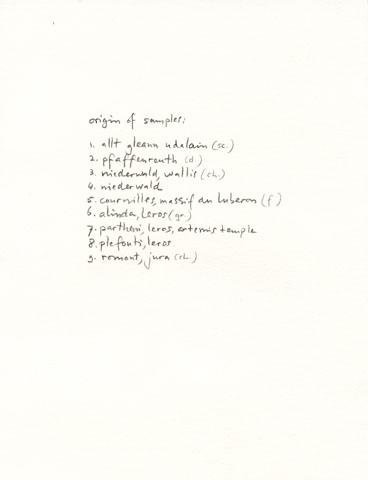 origin of samples:
1. allt gleann udalain (sc.)
2. pfaffenreuth (d.)
3. niederwald, wallis (ch.)
4. niederwald
5. courvilles, massif du luberon (f)
6. alinda, leros (gr.)
7. partheni, leros, artemis temple
8. plefouti, leros
9. romont, jura (ch.)